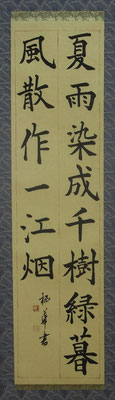 夏雨染成千樹緑暮
風散作一江烟